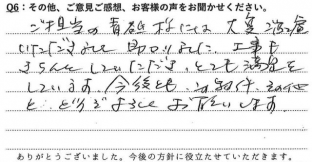 Q6：その他、ご意見ご感想、お客様の声をお聞かせください。
ご担当の青砥様には大変ご配慮
いただきまして助かりました。工事も
きちんとしていただき、とても満足を
しています。今後とも、
と、どうぞよろしくお願いします
ありがとうございました。今後の方針に役立たせていただきます。